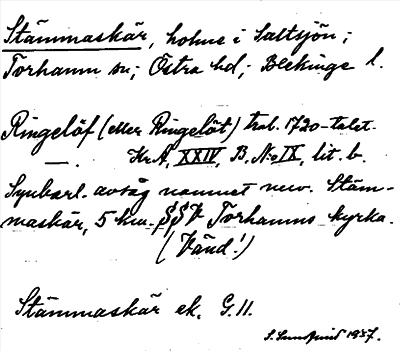 Stämmaskär, holme i Saltsjön;
Torhamn sn; Östra hd; Blekinge l.
Ringelöf (eller Ringelöt) trol. 1720-talet.
—. KrA, XXIV, B. No IX, lit. b.
Synbarl. avsåg namnet nuv. Stäm-
maskär, 5 km. SSV Torhamns kyrka.
(Vänd!)
Stämmaskär ek. G. 11.
S. Lundqvist 1957.